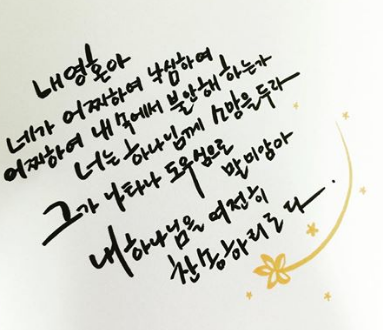 내 영혼아
네가 어찌하여 낙심하며
어찌하여 내 속에서 불안해 하는가
너는 하나님께 소망을 두라
그가 나타나 도우심으로
말미암아
내 하나님을 여전히
찬송하리로다.